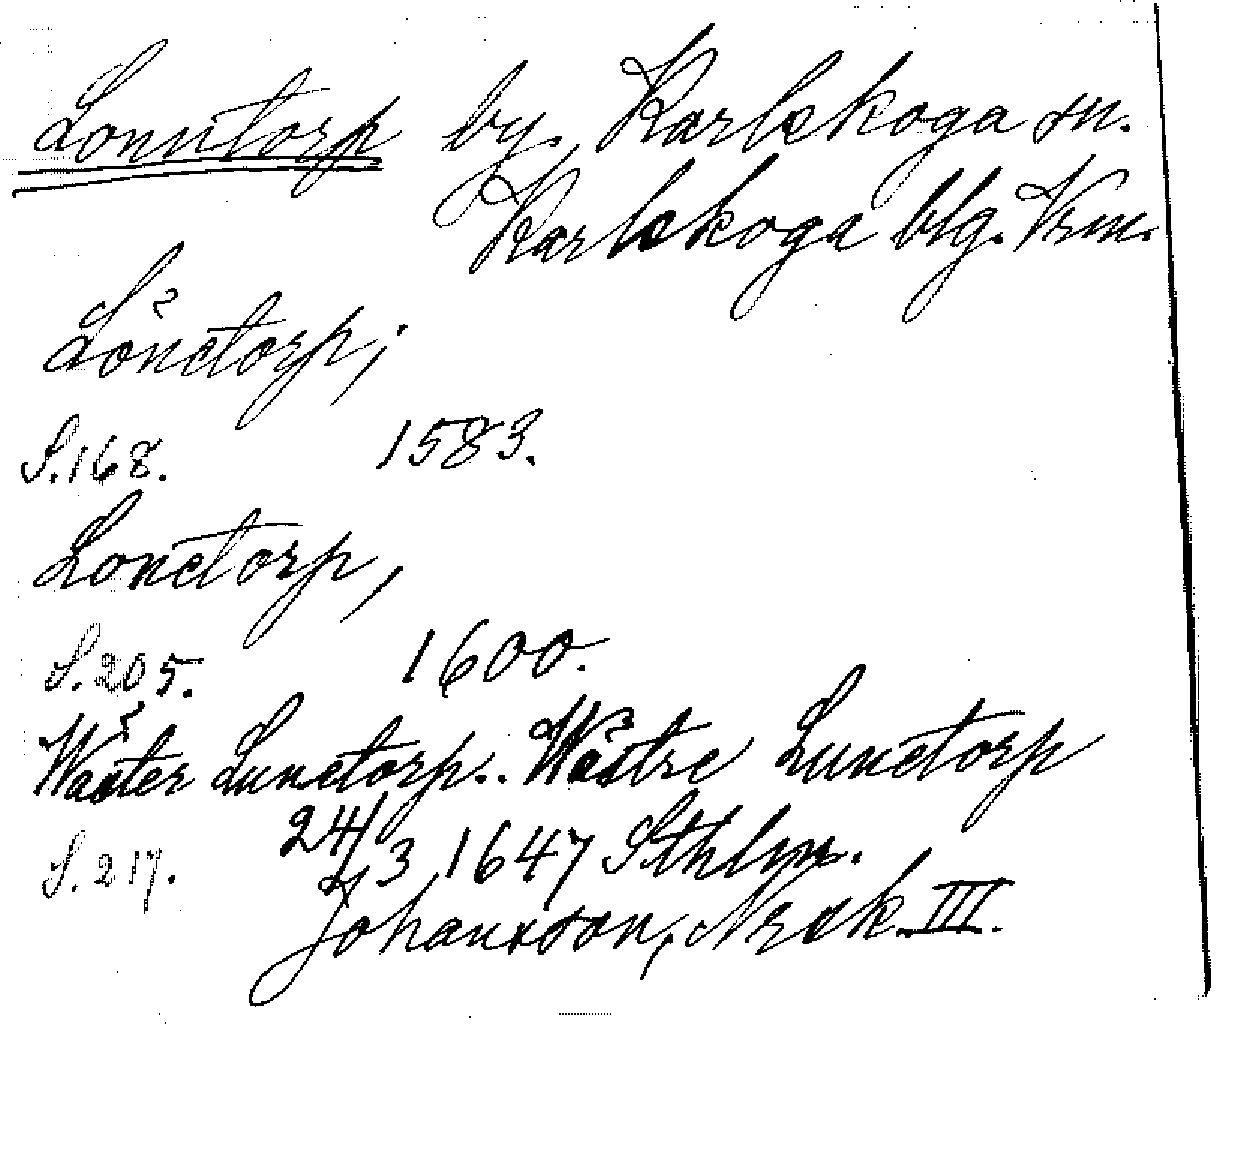 Lonntorp by. Karlskoga sn.
Karlskoga blg. Vrm.
Lonetorp;
S. 168. 1583.
Lonetorp,
S. 205. 1600.
Wäster Lunetorp.. Wästre Lunetorp
24/3 1647 Sthlm.
S. 217.
Johansson, N:o